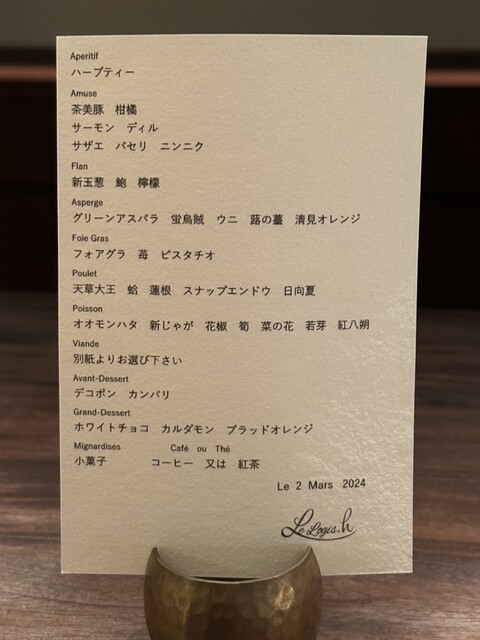 Aperitif
ハーブティー
Amuse
茶美豚　柑橘
サーモン　ディル
サザエ　パセリ　ニンニク
Flan
新玉葱　鮑　檸檬
Asperge
グリーンアスパラ　蛍烏賊　ウニ　蕗の薹　清見オレンジ
Foie Gras
フォアグラ　苺　ピスタチオ
Poulet
天草大王　蛤　蓮根　スナップエンドウ　日向夏
Poisson
オオモンハタ　新じゃが　花椒　筍　菜の花　若芽　紅八朔
Viande
別紙よりお選び下さい
Avant-Dessert
デコポン　カンパリ
Grand-Dessert
ホワイトチョコ　カルダモン　ブラッドオレンジ
Mignardises　Café ou Thé
小菓子　コーヒー　又は　紅茶
Le 2 Mars 2024
Le Logis.h